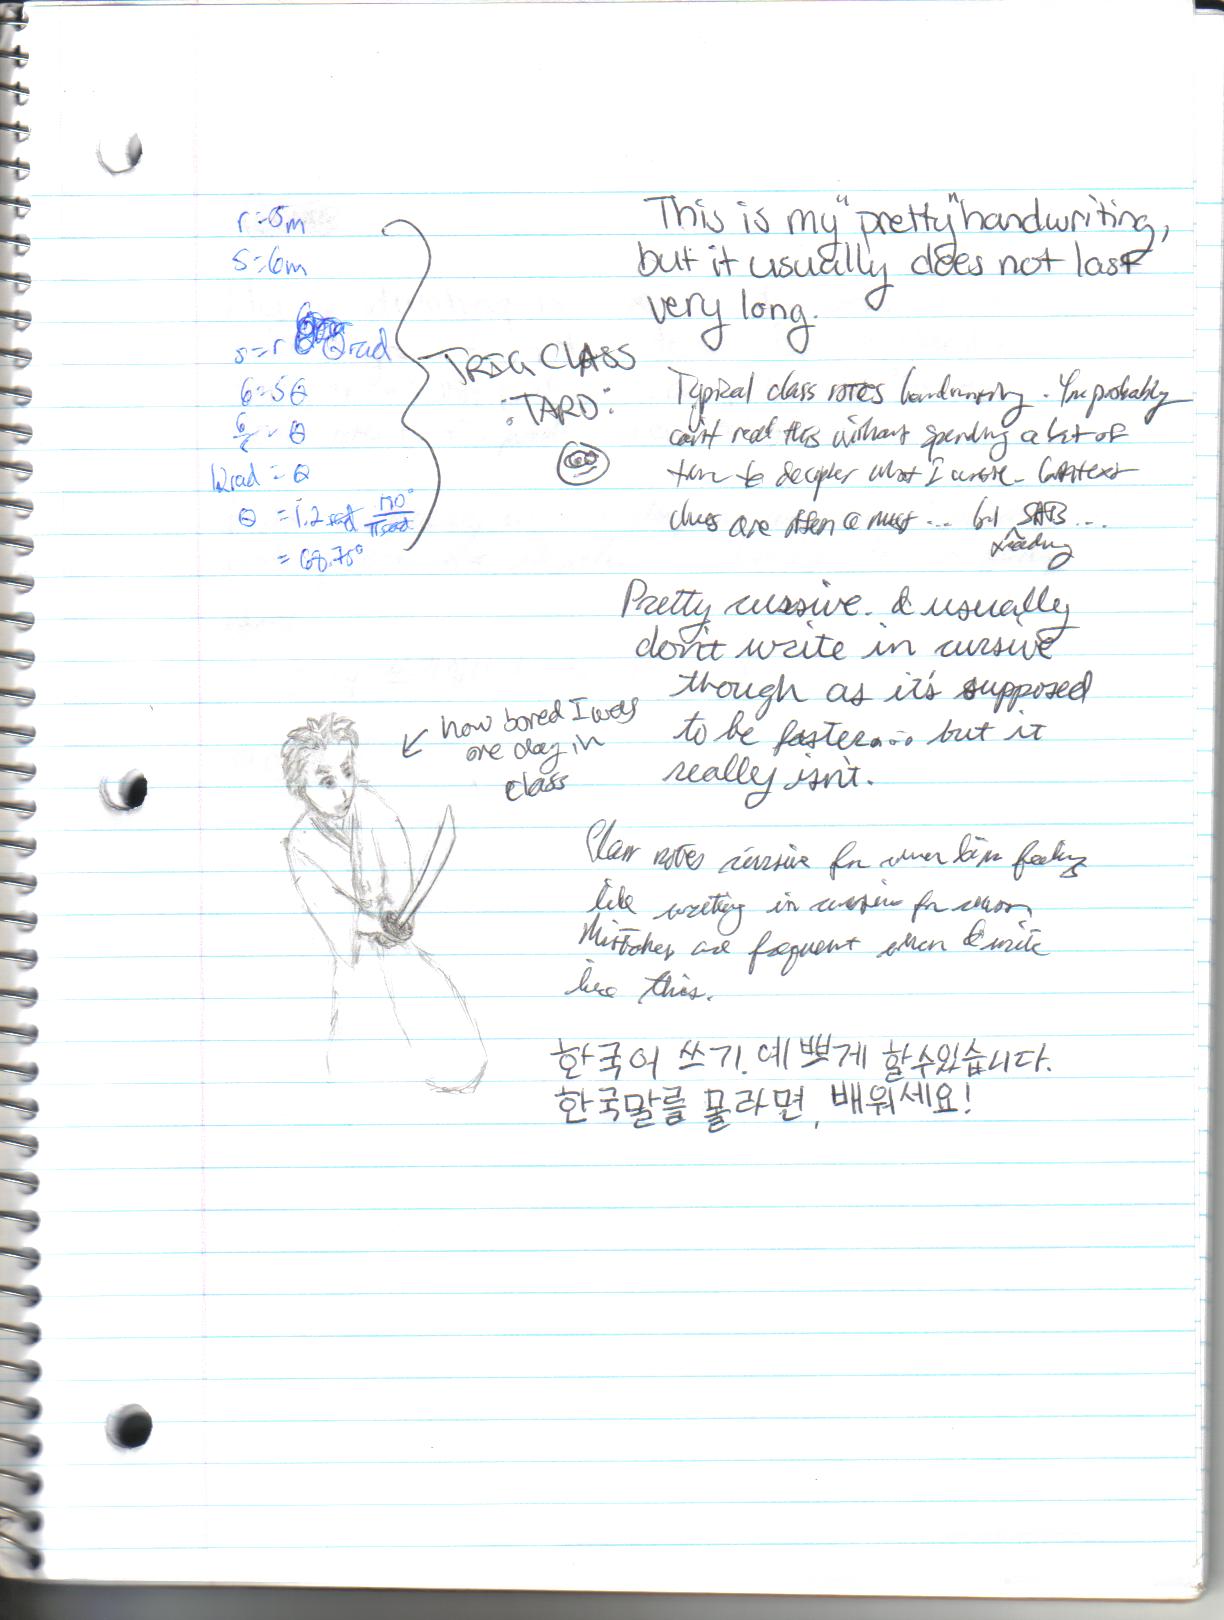 r=5m
s=6m
s=r θrad
6=5θ
6/5 = θ
1.2rad = θ
θ = 1.2 rad 180°/πrad
= 68.75°
TRIG CLASS
"TARD"
This is my "pretty" handwriting,
but it usually does not last
very long.
Typical class notes handwriting. You probably
can't read this without spending a lot of
time to decipher what I wrote. Context
clues are often a must...
reading
Pretty cursive. I usually
don't write in cursive
though as it's supposed
to be faster.... but it
really isn't.
how bored I was
one day in
class
Class notes cursive for when I'm feeling
like writing in cursive for
Mistakes are frequent when I write
like this.
한국어 쓰기. 예쁘게 할수있습니다.
한국말를 몰라면, 배워세요!